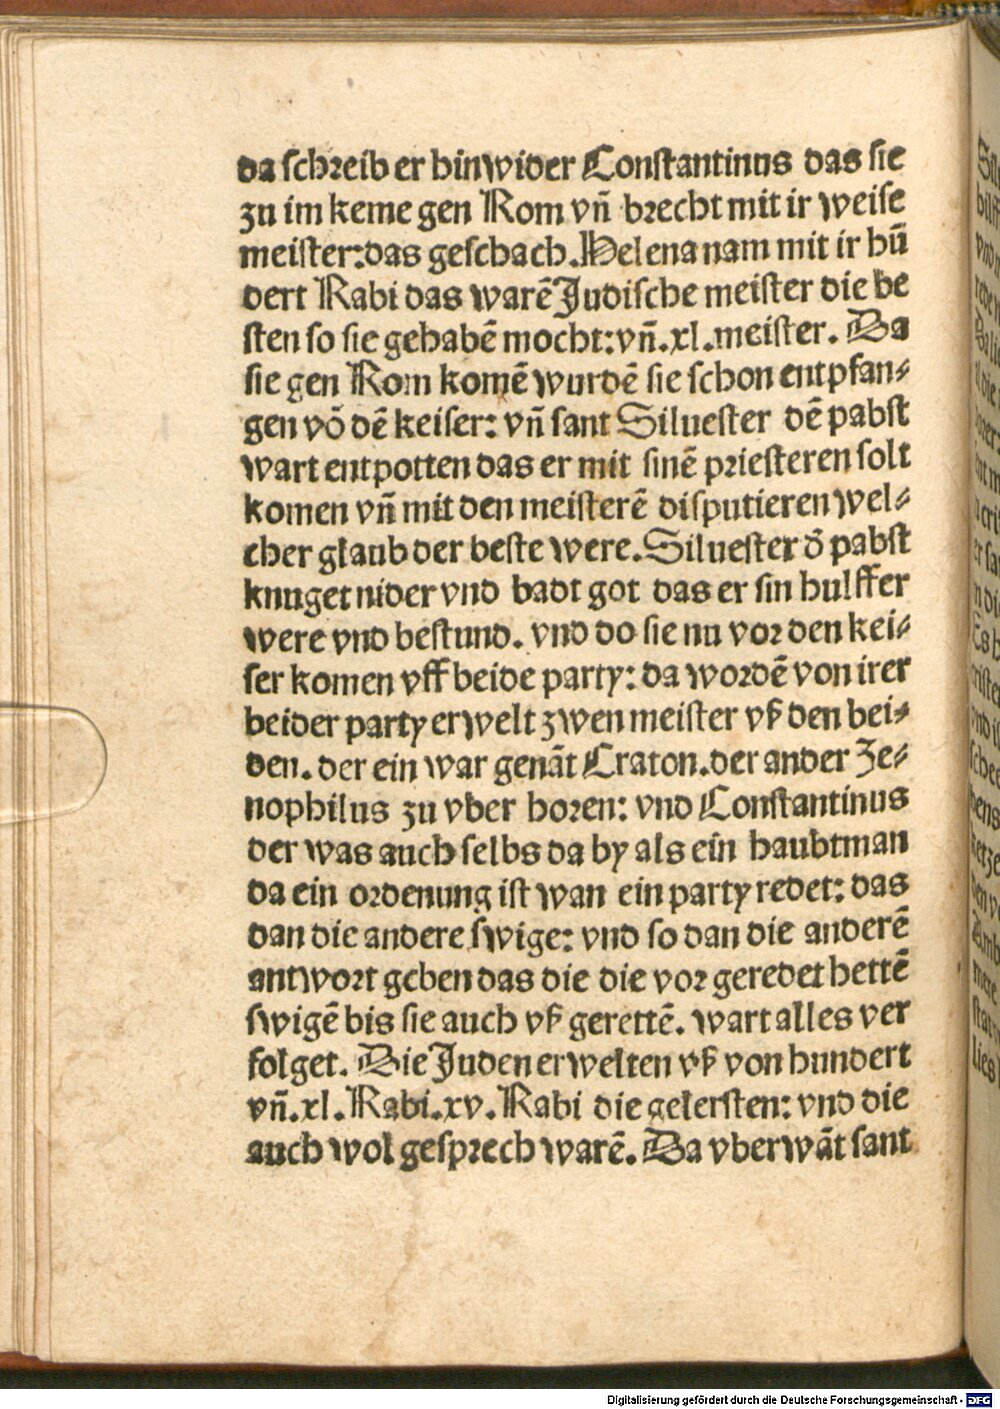 da schreib er hinwider Constantinus das sie
zu im keme gen Rom vñ brecht mit ir weise
meister:das geschach.Helena nam mit ir hū
dert Rabi das warē Judische meister die be
sten so sie gehabē mocht:vñ.xl.meister. Da
sie gen Rom komē wurdē sie schon entpfan⸗
gen vō dē keiser: vñ sant Siluester dē pabst
wart entpotten das er mit sinē priesteren solt
komen vñ mit den meisterē disputieren wel⸗
cher glaub der beste were.Siluester d̄ pabst
knuget nider vnd badt got das er sin hulffer
were vnd bestund. vnd do sie nu vor den kei⸗
ser komen vff beide party: da wordē von irer
beider party erwelt zwen meister vß den hei⸗
den. der ein war genāt Craton.der ander Ze⸗
nophilus zu vber horen: vnd Constantinus
der was auch selbs da by als ein haubtman
da ein ordenung ist wan ein party redet: das
dan die andere swige: vnd so dan die anderē
antwort geben das die die vor geredet hettē
swigē bis sie auch vß gerettē. wart alles ver
folget. Die Juden erwelten vß von hundert
vñ.xl. Rabi.xv. Rabi die gelersten: vnd die
auch wol gesprech warē. Da vberwāt sant
Digitalisierung gefördert durch die Deutsche Forschungsgemeinschaft - DFG